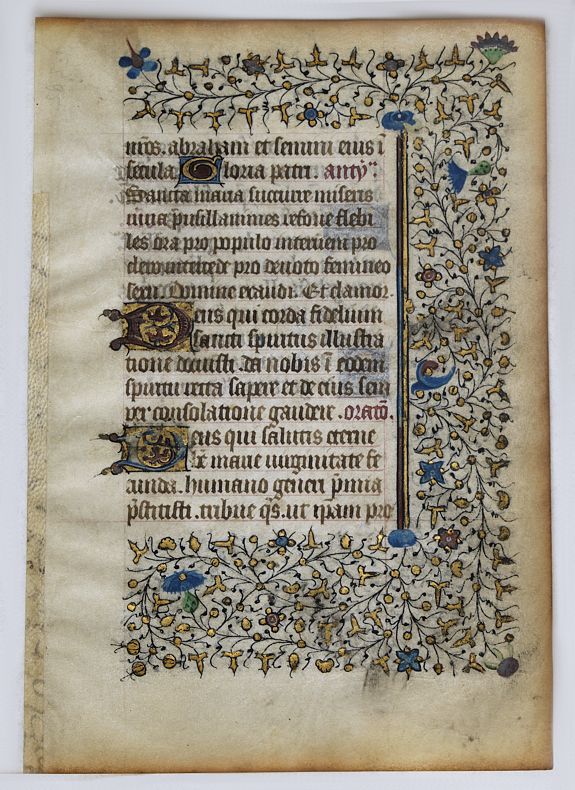 nr̄os. abraham et semini eius ī
secula. Gloria patri. anty͞
Sancta maria succurre miseris
iuua pusillanimes refoue flebi
les ora pro populo interueni pro
clero intercede pro deuoto femineo
sexu Domine exaudi. Et clamor.
Deus qui corda fidelium
sancti spiritus illustra
tione docuisti. da nobis ī eodem
spiritu recta sapere et de eius sem
per consolatione gaudere. orato͞.
Deus qui salutis eterne
b͞e marie uirginitate fe
cunda. humano generi p͞mia
p͞stitisti. tribue q͞s. ut ip͞am pro